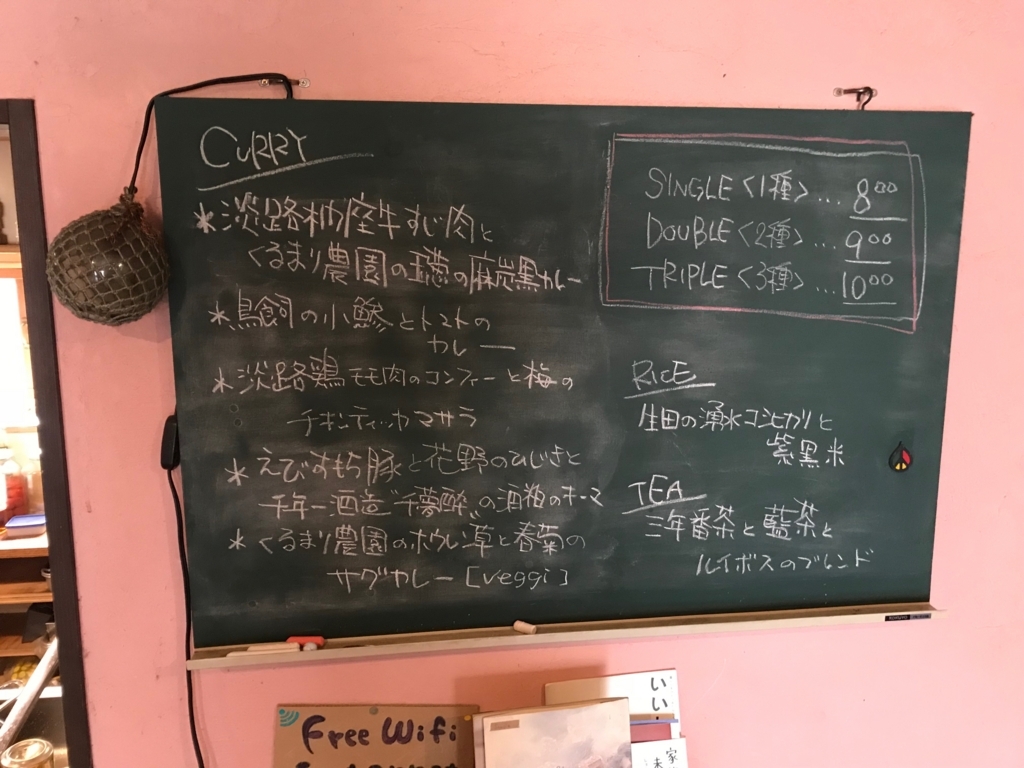 CURRY
*淡路和産牛すじ肉と
くるまり農園の玉葱の麻炭黒カレー
*鳥飼の小鯵とトマトの
カレー
*淡路鶏モモ肉のコンフィーと梅の
チキンティッカマサラ
*えびすもち豚と花野のひじきと
千年一酒造"千夢酔"の酒粕のキーマ
*くるまり農園のホウレン草と春菊の
サグカレー [veggi]
SINGLE <1種> ... 800
DOUBLE <2種> ... 900
TRIPLE <3種> ... 1000
RICE
生田の湧水コシヒカリと
紫黒米
TEA
三年番茶と藍茶と
ルイボスのブレンド
Free Wifi
いい
家